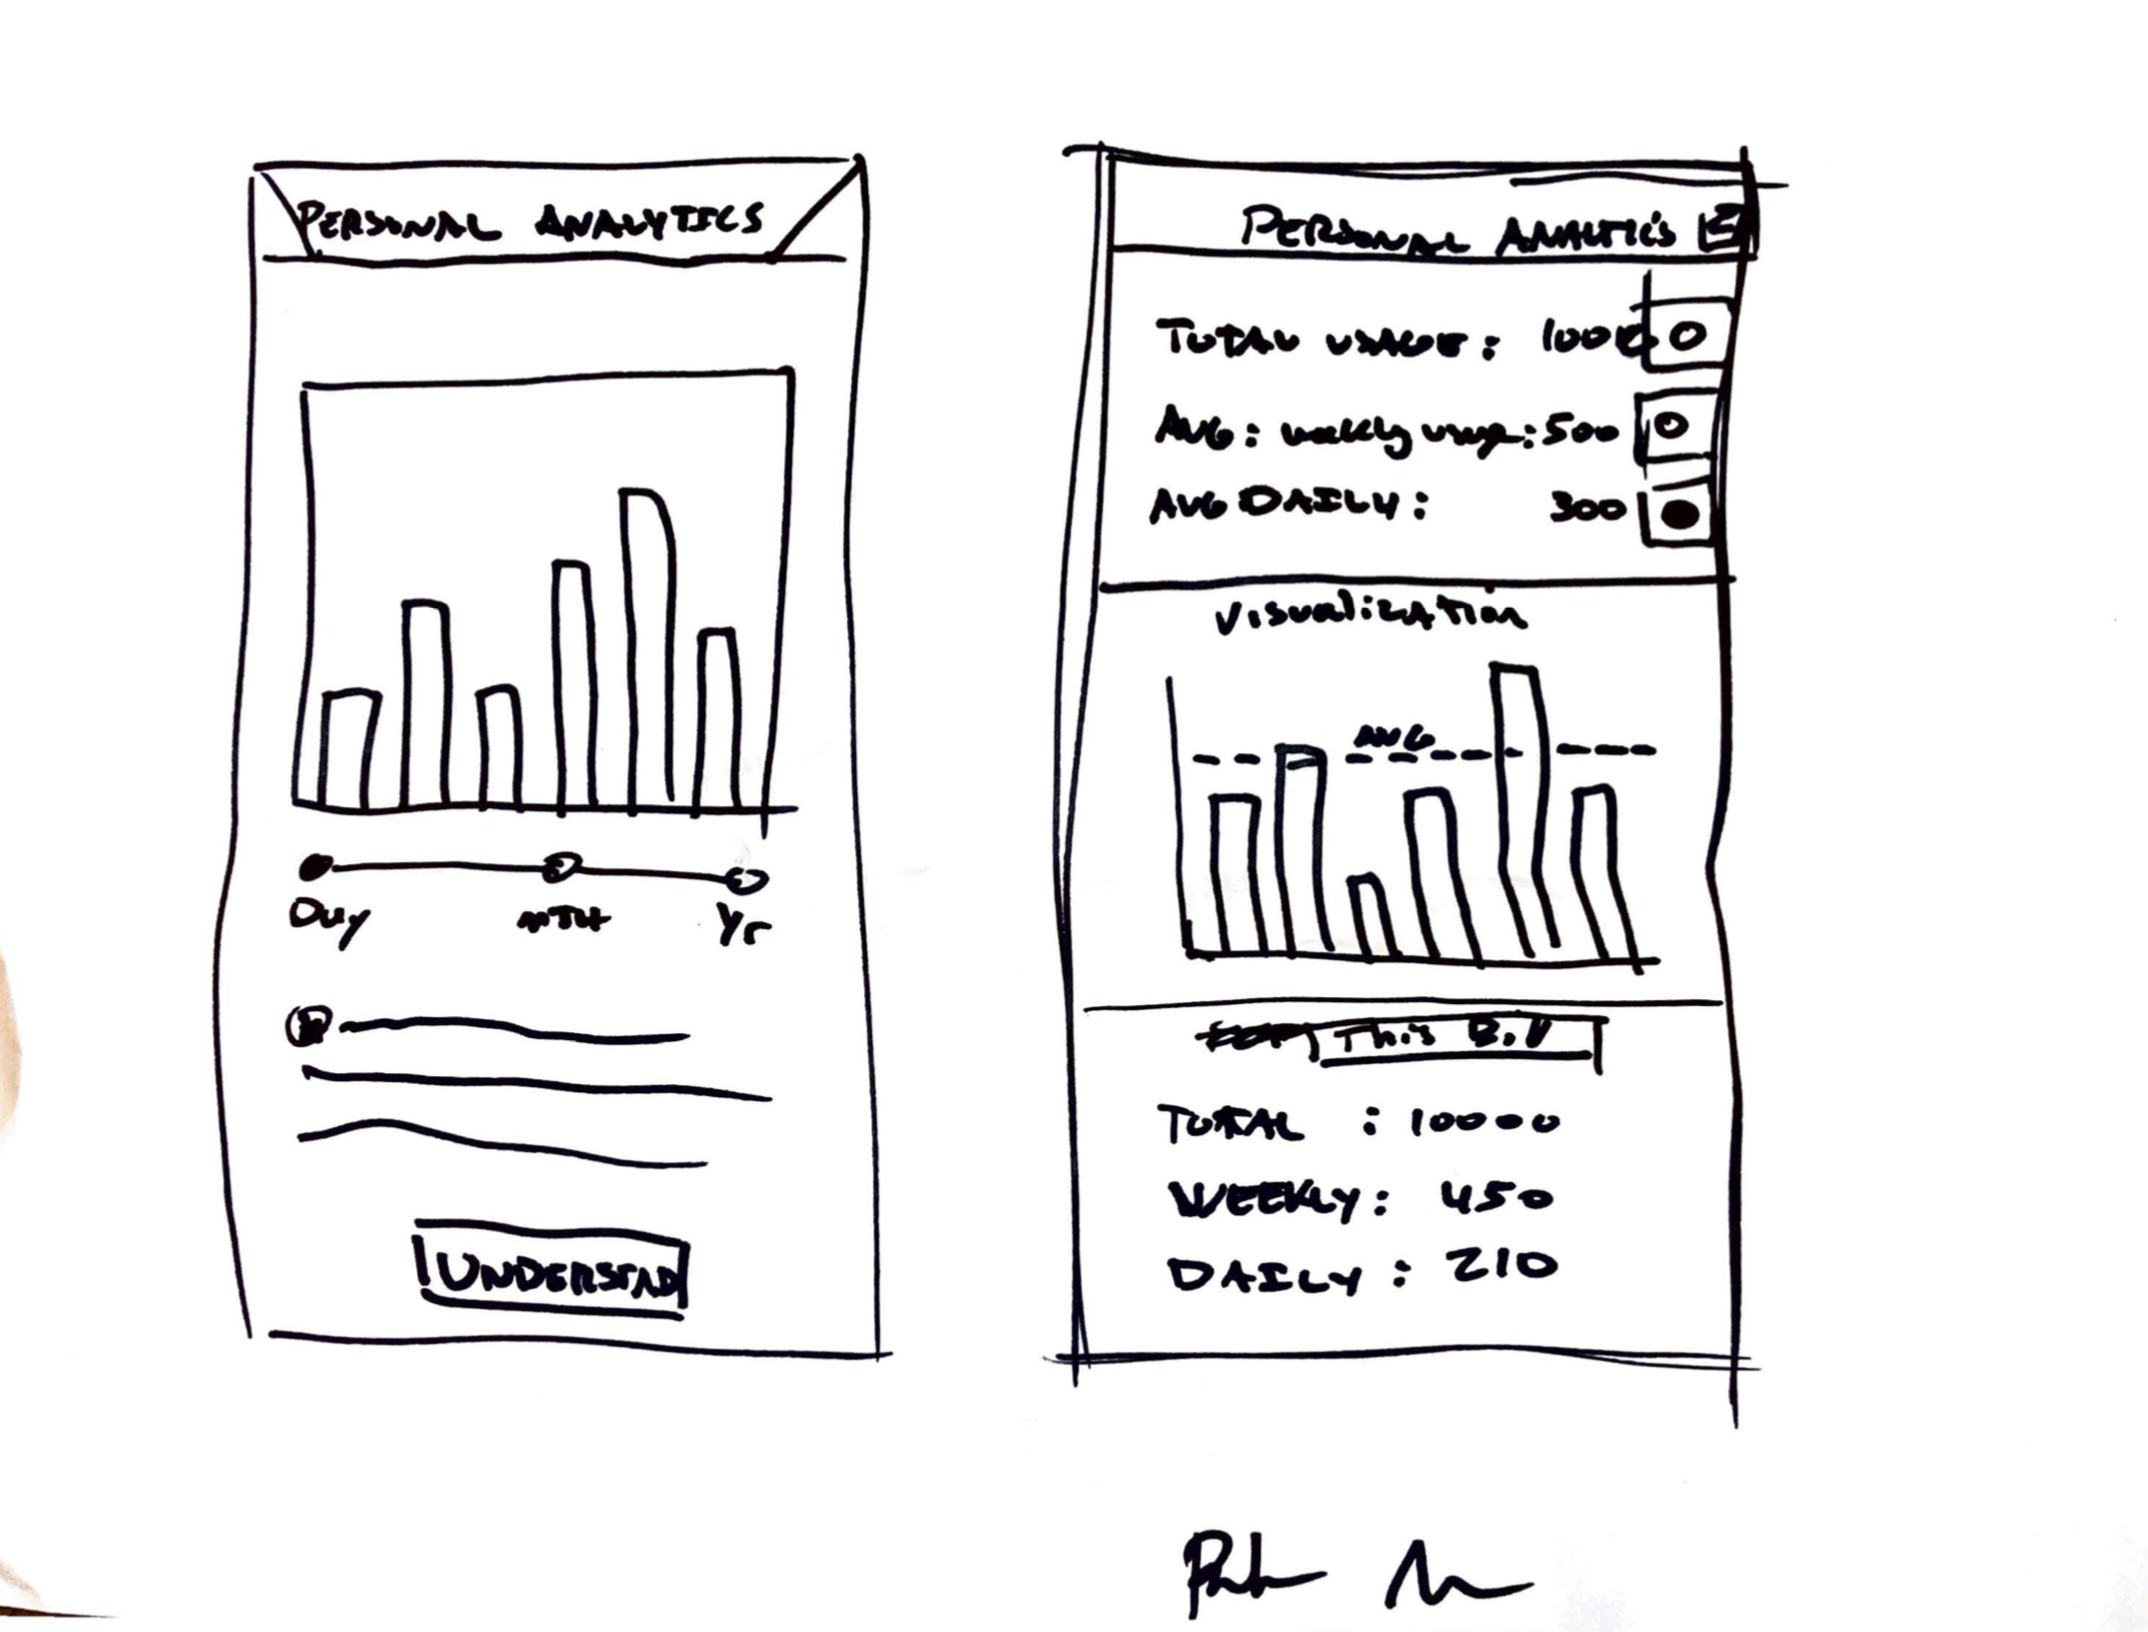 PERSONAL ANALYTICS
Day mTH Yr
UNDERSTAD
PERSONAL ANALYTICS
TOTAL USAGE: 1000
AVG: weekly usage: 500
AVG DAILY: 300
Visualization
AVG
This Bill
TOTAL : 10000
WEEKLY: 450
DAILY: 210